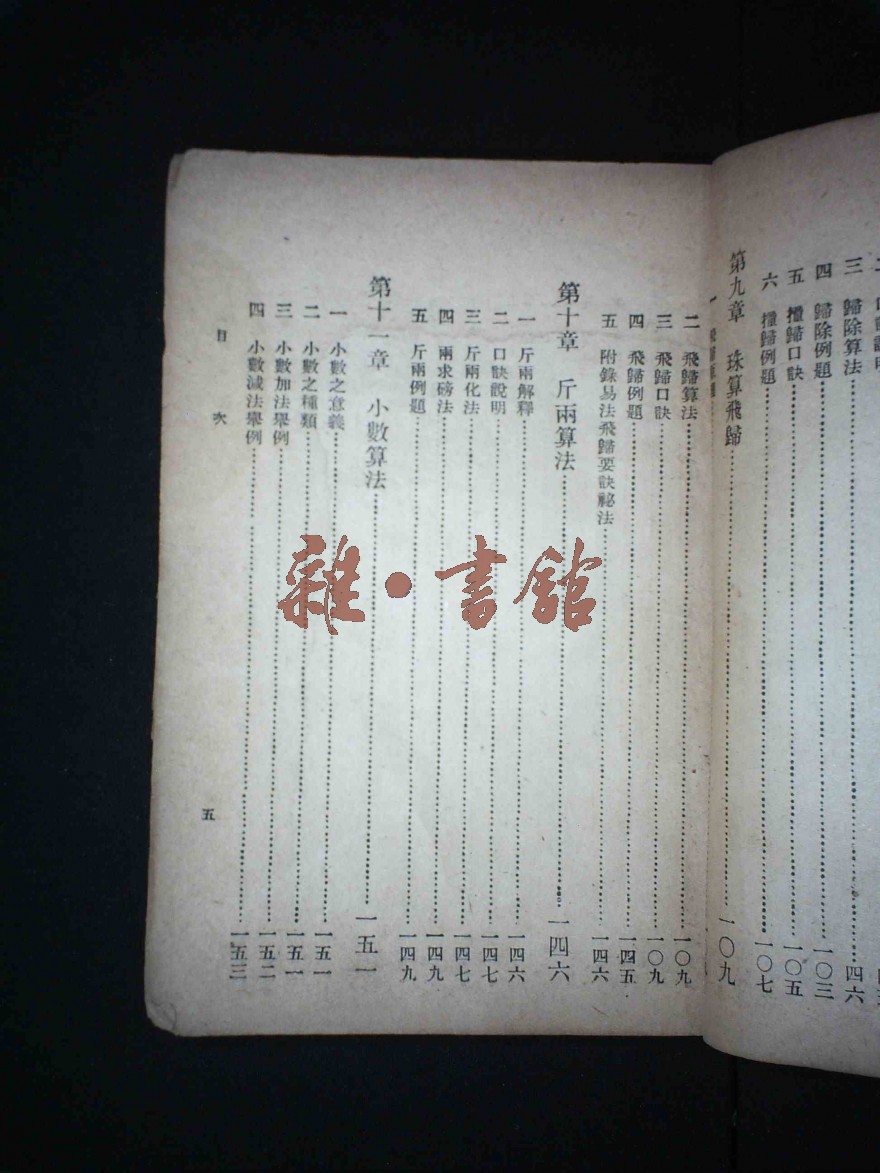 三 歸除算法 四六
四 歸除例題 一〇三
五 撞歸口訣 一〇五
六 撞歸例題 一〇七
第九章 珠算飛歸 一〇九
二 飛歸算法 一〇九
三 飛歸口訣 一〇九
四 飛歸例題 一四五
五 附錄易法飛歸要訣祕法 一四六
第十章 斤兩算法 一四六
一 斤兩解釋 一四六
二 口訣說明 一四七
三 斤兩化法 一四七
四 兩求磅法 一四九
五 斤兩例題 一四九
第十一章 小數算法 一五一
一 小數之意義 一五一
二 小數之種類 一五一
三 小數加法舉例 一五二
四 小數減法舉例 一五三
目次
五
雜·書館